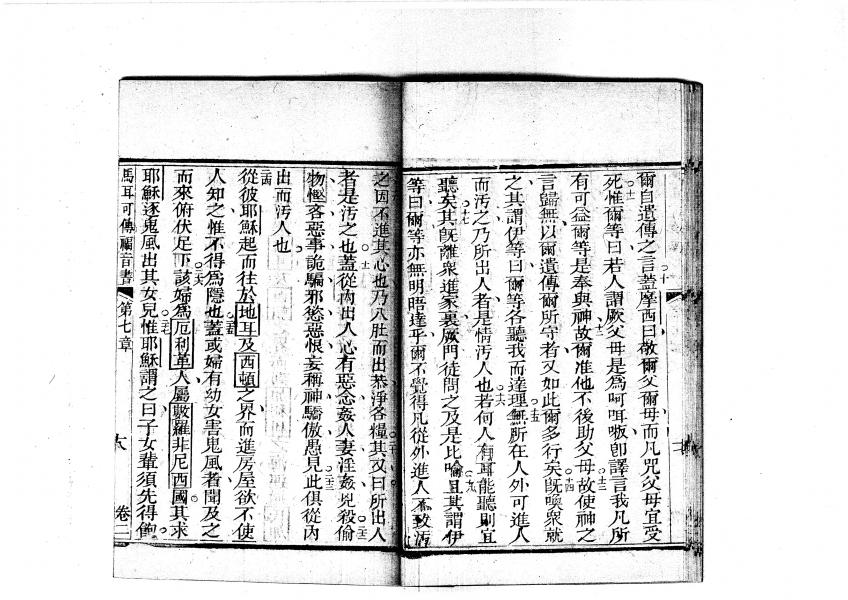 爾自遺傳之言蓋摩西曰敬爾父爾母而凡咒父母宜受
死惟爾等曰若人謂厥父母是為呵咡𠵽卽譯言我凡所
有可益爾等是奉與神故爾准他不後助父母故使神之
言歸無以爾遺傳爾所守者又如此爾多行矣旣喚衆就
之其謂伊等曰爾等各聽我而達理無所在人外可進人
而汚之乃所出人者是情汚人也若何人有耳能聽則宜
聽矣其旣離衆進家裏厥門徒問之及是比喻且其謂伊
等曰爾等亦無明晤達乎爾不覺得凡從外進人不致汚
之因不進其心也乃入肚而出恭淨各糧其又曰所出人
者是汚之也蓋從內出人心有惡念姦人妻淫姦兇殺偷
物慳吝惡事詭騙邪慾惡恨妄稱神驕傲愚見此俱從內
出而汚人也
從彼耶穌起而往於地耳及西頓之界而進房屋欲不使
人知之惟不得為隱也蓋或婦有幼女害鬼風者聞及之
而來俯伏足下該婦為厄利革人屬數羅非尼西國其求
耶穌逐鬼風出其女兒惟耶穌謂之曰子女輩須先得飽
馬耳可傳福音書 第七章 卷二